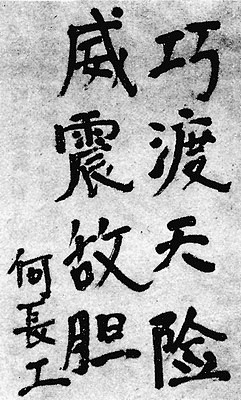 巧渡天险
威震敌胆
何長工